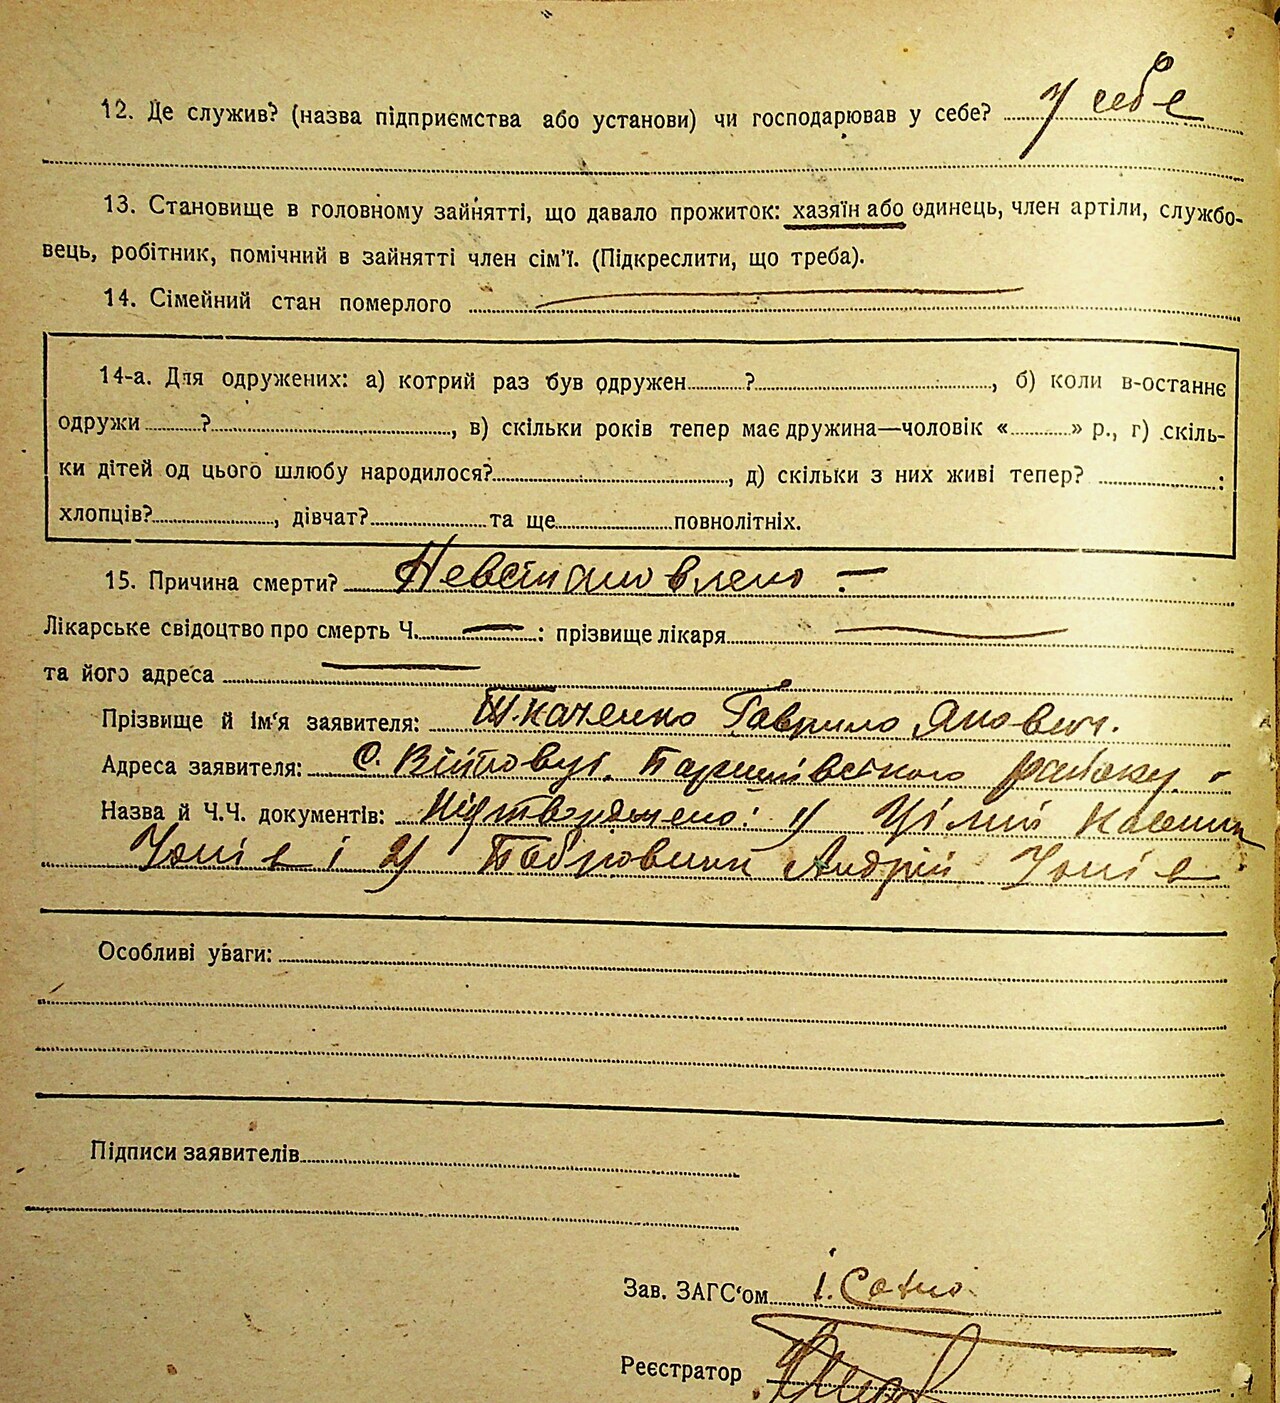 12. Де служив? (назва підприємства або установи) чи господарював у себе? у себе
13. Становище в головному зайнятті, що давало прожиток: хазяїн або одинець, член артілі, службо-
вець, робітник, помічний в зайнятті член сім'ї. (Підкреслити, що треба).
14. Сімейний стан померлого
14-а. Для одружених: а) котрий раз був одружен ?, б) коли в-останнє
одружи ?, в) скільки років тепер має дружина—чоловік « » р., г) скіль-
ки дітей од цього шлюбу народилося?, д) скільки з них живі тепер? :
хлопців?, дівчат? та ще повнолітніх.
15. Причина смерти? Невстановлено —
Лікарське свідоцтво про смерть Ч. — : прізвище лікаря
та його адреса
Прізвище й ім'я заявителя: Ткаченко Гаврило Якович.
Адреса заявителя: С. Війтовці району
Назва й Ч.Ч. документів: Підтверджено: 1) Цілий
і 2) Бобровник Андрій
Особливі уваги:
Підписи заявителів
Зав. ЗАГС'ом І.
Реєстратор